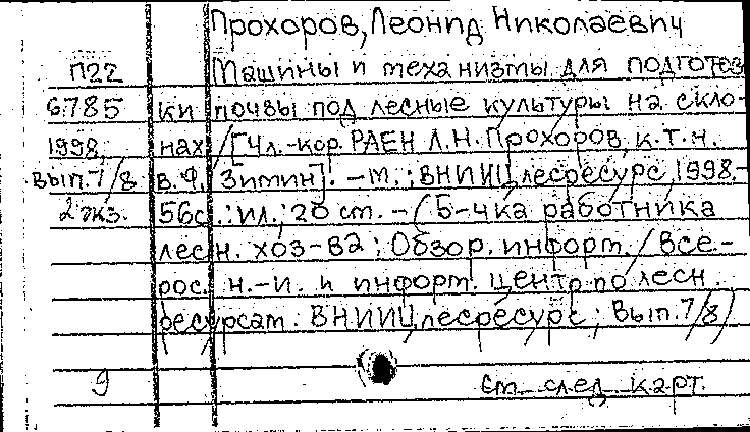 Прохоров, Леонид Николаевич
П22 Машины и механизмы для подготов
6785 ки почвы под лесные культуры на скло-
1998, нах / [Чл.-кор. РАЕН Л.Н. Прохоров, к.т.н.
вып.7/8 В.Ф. Зимин]. – М.: ВНИИЦлесресурс, 1998.-
2 экз. 56с.: ил.; 20 см. – (Б-чка работника
лесн. хоз-ва; Обзор. информ. / Все-
рос. н.-и. и информ. центр по лесн.
ресурсам. ВНИИЦлесресурс; Вып.7/8)
9 см. след. карт.